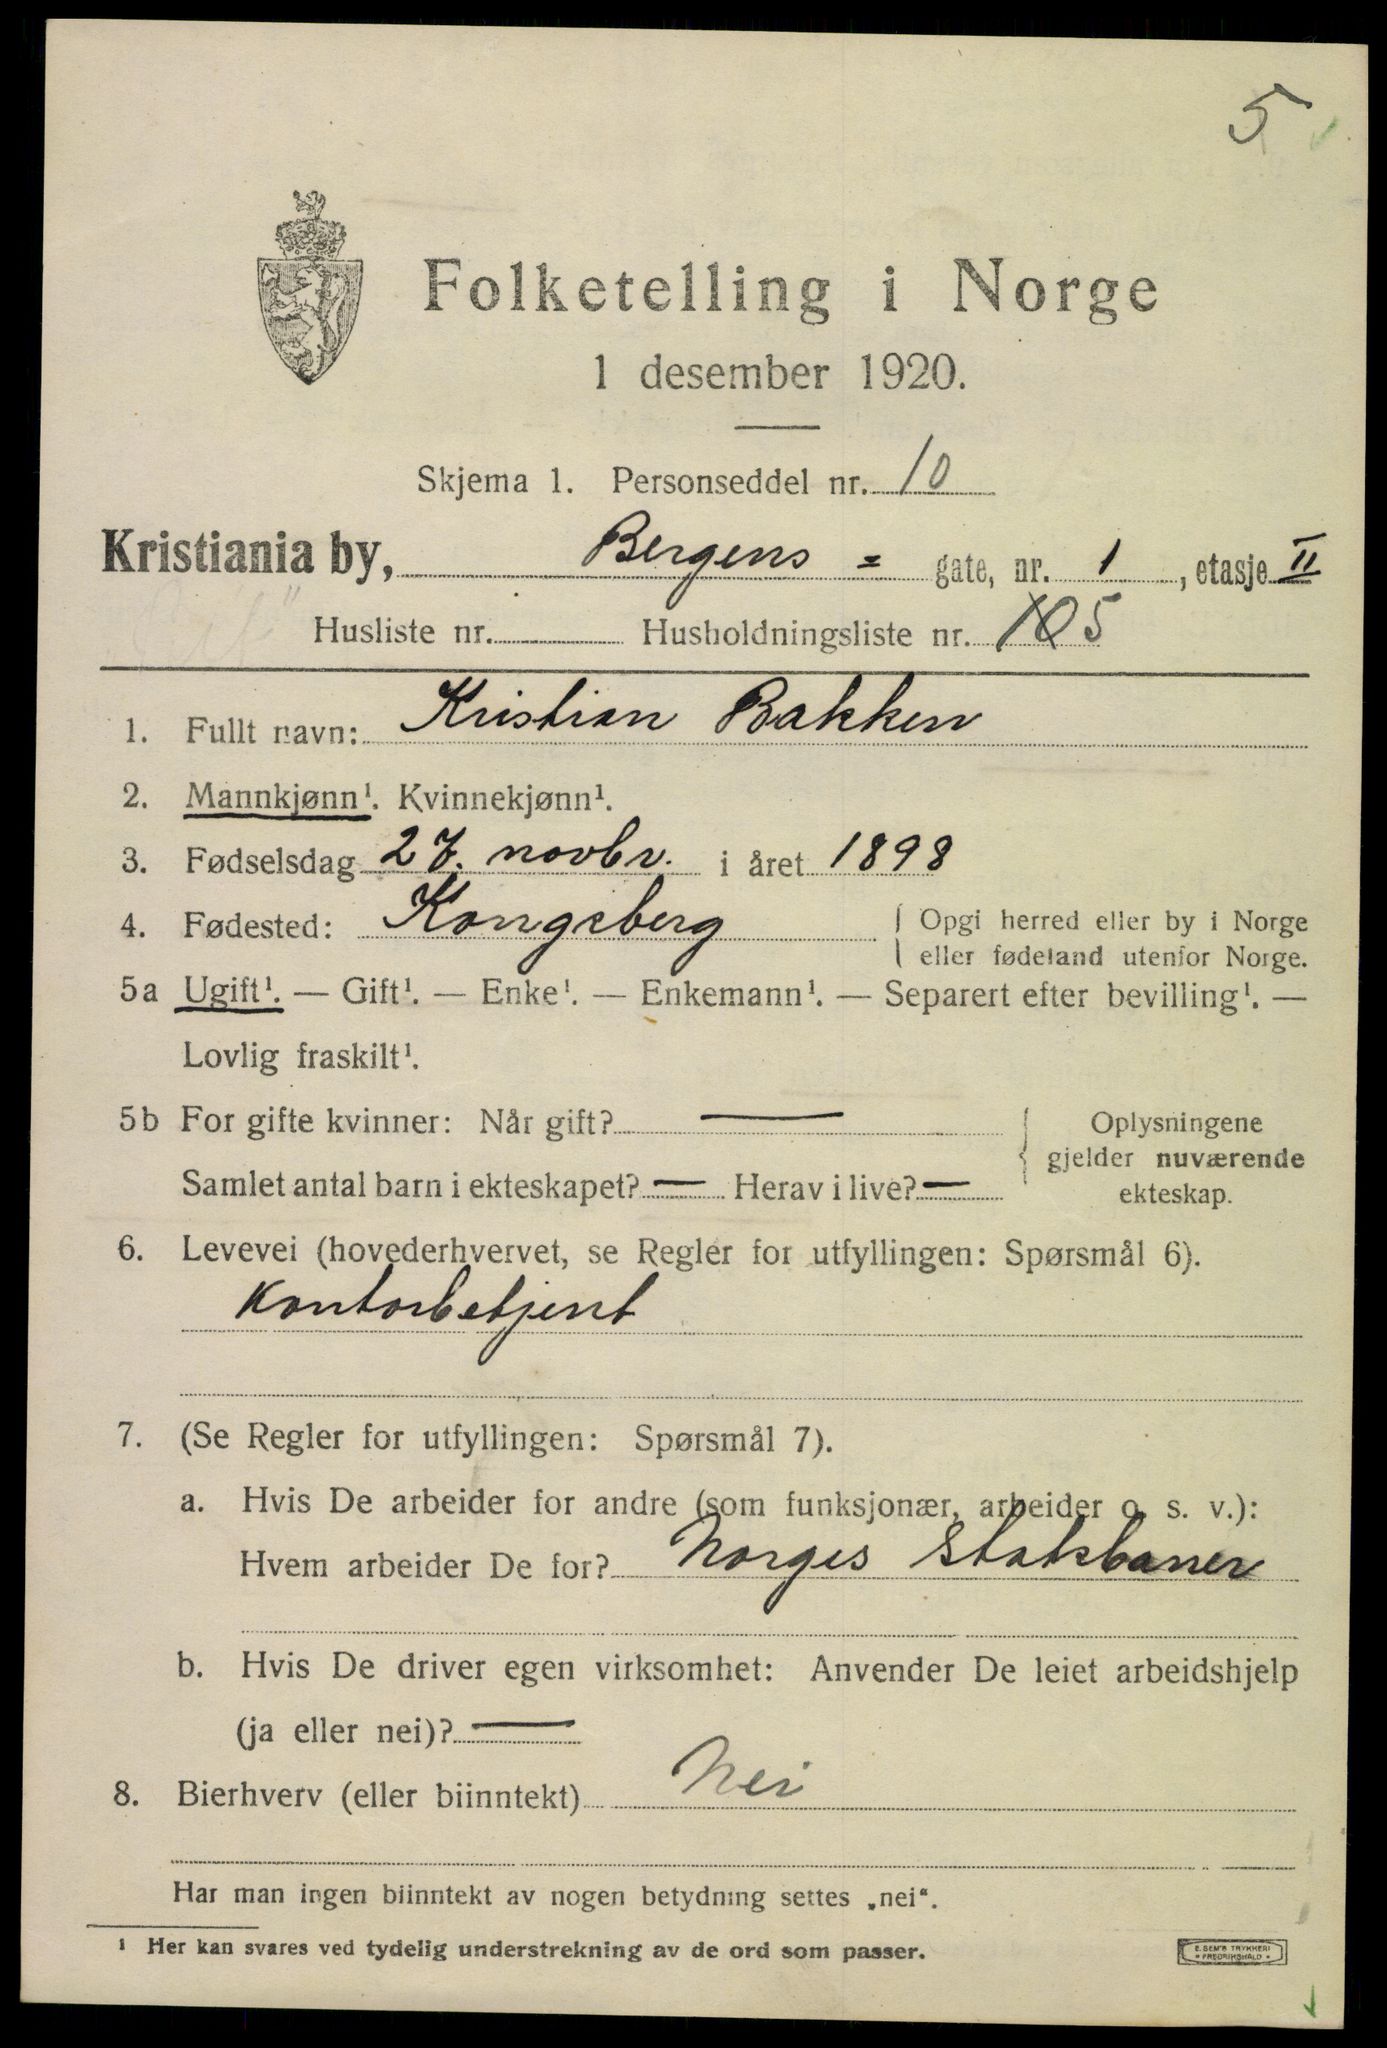 5
Folketelling i Norge
1 desember 1920.
Skjema 1. Personseddel nr. 10
Kristiania by, Bergens = gate, nr. 1, etasje II
Husliste nr. Husholdningsliste nr. 10 5
1. Fullt navn: Kristian Bakken
2. Mannkjønn¹. Kvinnekjønn¹.
3. Fødselsdag 27. novbr. i året 1898
4. Fødested: Kongsberg { Opgi herred eller by i Norge
eller fødeland utenfor Norge.
5a Ugift¹. — Gift¹. — Enke¹. — Enkemann¹. — Separert efter bevilling¹. —
Lovlig fraskilt¹.
5b For gifte kvinner: Når gift? — { Oplysningene
gjelder nuværende
Samlet antal barn i ekteskapet? — Herav i live? —
ekteskap.
6. Levevei (hovederhvervet, se Regler for utfyllingen: Spørsmål 6).
Kontorbetjent
7. (Se Regler for utfyllingen: Spørsmål 7).
a. Hvis De arbeider for andre (som funksjonær, arbeider o. s. v.):
Hvem arbeider De for? Norges Statsbaner
b. Hvis De driver egen virksomhet: Anvender De leiet arbeidshjelp
(ja eller nei)? —
8. Bierhverv (eller biinntekt) Nei
Har man ingen biinntekt av nogen betydning settes „nei“.
¹ Her kan svares ved tydelig understrekning av de ord som passer.
E. SEM'S TRYKKERI
* FREDRIKSHALD *